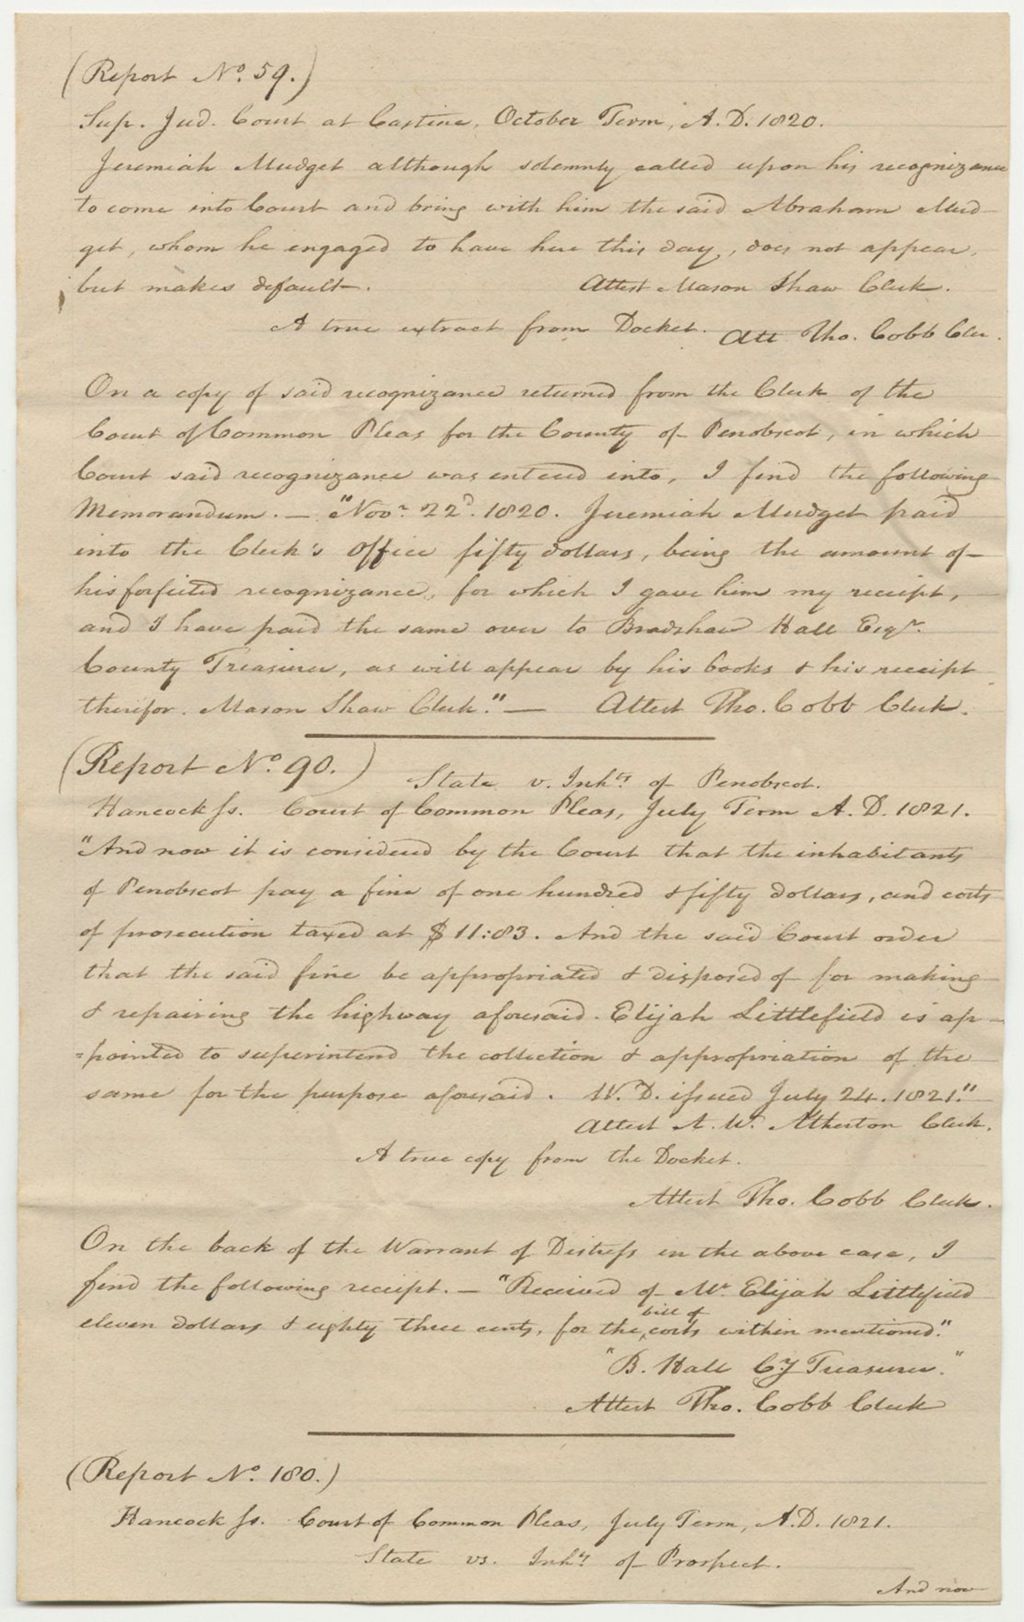 (Report No. 59.)
Sup. Jud. Court at Castine, October Term, A.D. 1820.
Jeremiah Mudget although solemnly called upon his recognizance
to come into Court and bring with him the said Abraham Mud-
get, whom he engaged to have here this day, does not appear,
but makes default. Attest Mason Shaw Clerk.
A true extract from Docket. Att Tho. Cobb Cler.
On a copy of said recognizance returned from the Clerk of the
Court of Common Pleas for the County of Penobscot, in which
Court said recognizance was entered into, I find the following
Memorandum. — "Novr. 22d. 1820. Jeremiah Mudget paid
into the Clerk's office fifty dollars, being the amount of
his forfeited recognizance, for which I gave him my receipt,
and I have paid the same over to Bradshaw Hall Esqr.
County Treasurer, as will appear by his books & his receipt
therefor. Mason Shaw Clerk." — Attest Tho. Cobb Clerk.
(Report No. 90.) State v. Inhts of Penobscot.
Hancock ss. Court of Common Pleas, July Term A.D. 1821.
"And now it is considered by the Court that the inhabitants
of Penobscot pay a fine of one hundred & fifty dollars, and costs
of prosecution taxed at $11:83. And the said Court order
that the said fine be appropriated & disposed of for making
& repairing the highway aforesaid. Elijah Littlefield is ap-
=pointed to superintend the collection & appropriation of the
same for the purpose aforesaid. W.D. issued July 24. 1821."
Attest A. W. Atherton Clerk.
A true copy from the Docket.
Attest Tho. Cobb Clerk.
On the back of the Warrant of Distress in the above case, I
find the following receipt. — "Received of Mr Elijah Littlefield
eleven dollars & eighty three cents, for the bill of costs within mentioned."
"B. Hall Cy Treasurer."
Attest Tho. Cobb Clerk
(Report No. 180.)
Hancock ss. Court of Common Pleas, July Term, A.D. 1821.
State vs. Inhts of Prospect.
And now